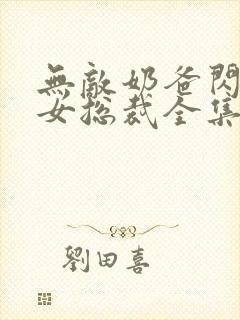 無敵奶爸閃
女總裁全集
劉田喜